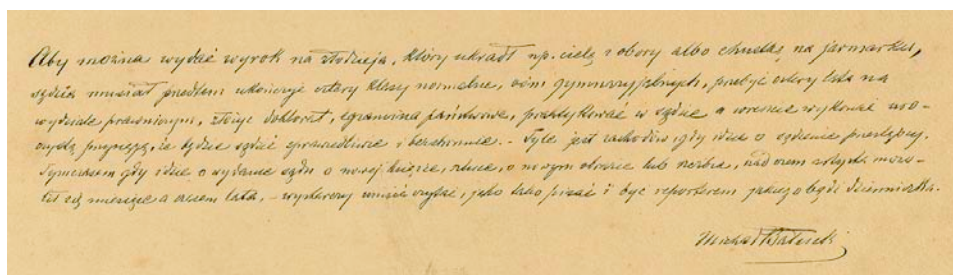 Aby można wydać wyrok na złodzieja, który ukradł np. cielę z obory albo chustkę na jarmarku,
sędzia musiał przedtem ukończyć cztery klasy normalne, ośm gymnazyjalnych, przebyć cztery lata na
wydziale prawniczym, złożyć doktorat, egzamina państwowe, praktykować w sądzie a wreszcie wykonać uro-
czystą przysięgę, że będzie sądzić sprawiedliwie i bezstronnie. – Tyle jest zachodów gdy idzie o sądzenie
Tymczasem gdy idzie o wydanie sądu o nowej książce, sztuce, o nowym obrazie lub rzeźbie, nad czem artysta mozo-
lił się miesiące a czasem lata, – wystarczy umieć czytać, jako tako pisać i być reporterem jakiego bądź dzienniczka.
Michał Bałucki